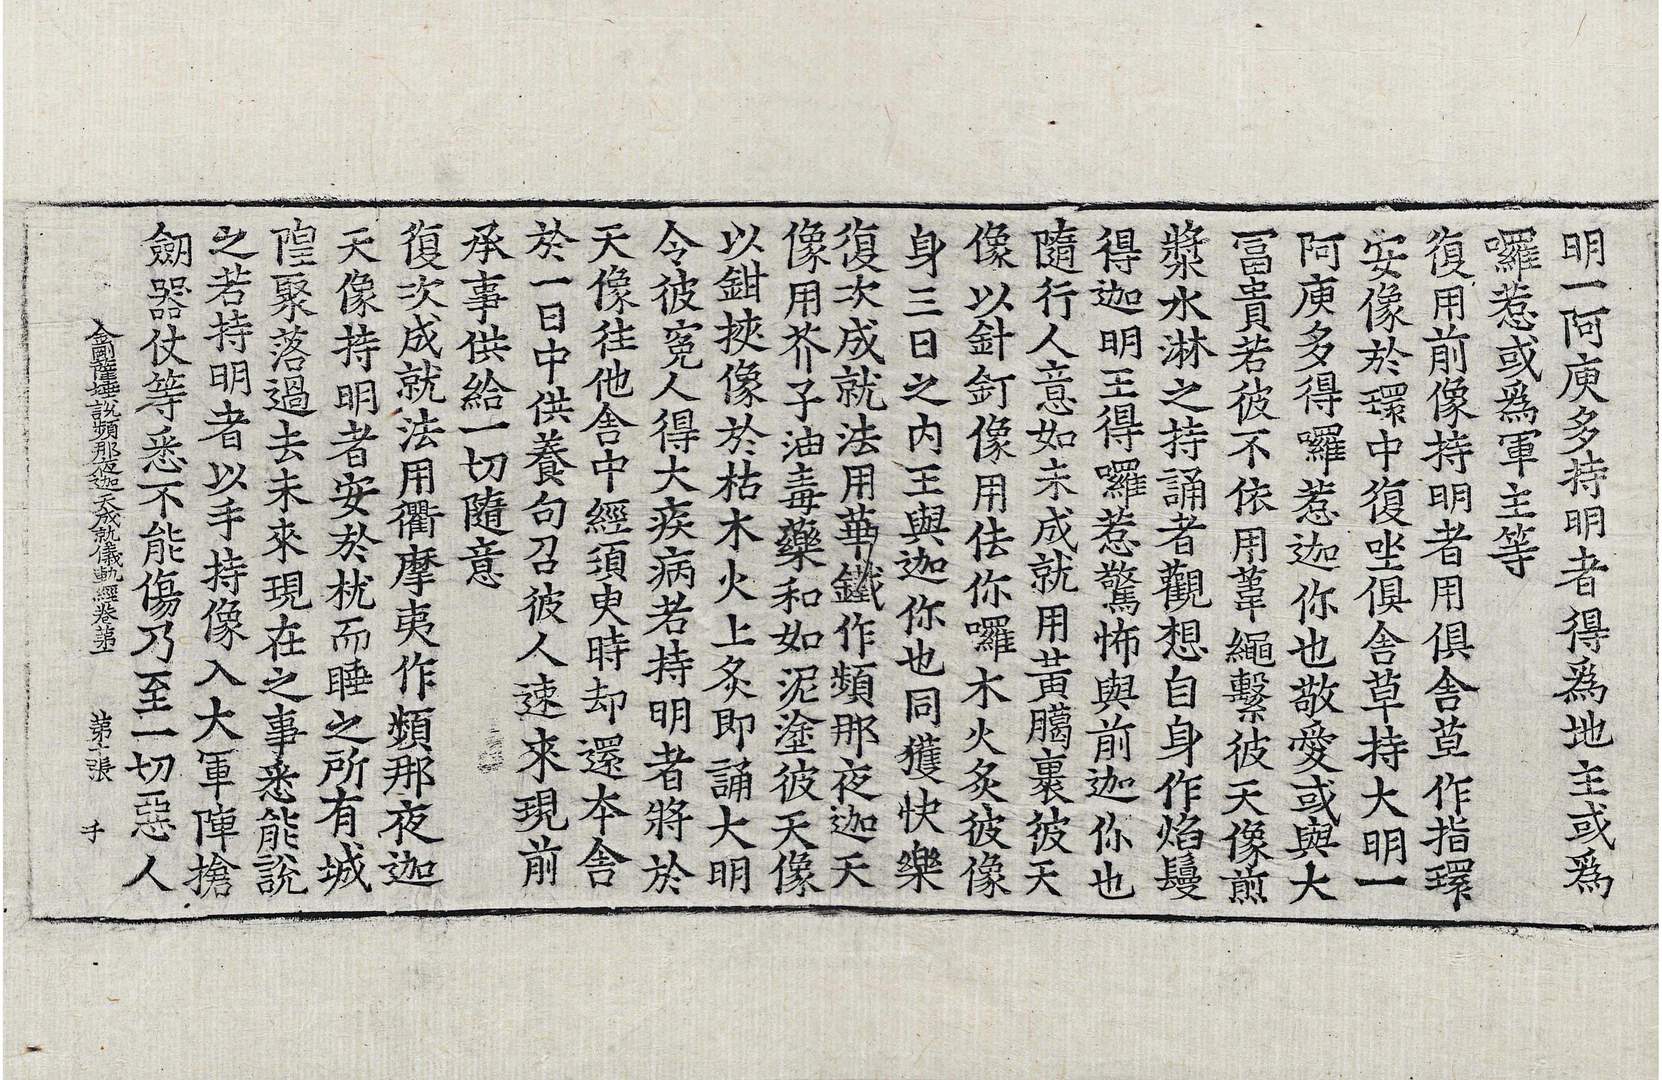 明一阿庾多持明者得爲地主或爲
囉惹或爲軍主等
復用前像持明者用俱舍草作指環
安像於環中復坐俱舍草持大明一
阿庾多得囉惹迦你也敬愛或與大
富貴若彼不依用葦繩繫彼天像煎
漿水淋之持誦者觀想自身作焰鬘
得迦明王得囉惹驚怖與前迦你也
隨行人意如未成就用黃臈裹彼天
像以針釘像用佉你囉木火炙彼像
身三日之內王與迦你也同獲快樂
復次成就法用華鐵作頻那夜迦天
像用芥子油毒藥和如泥塗彼天像
以鉗挾像於枯木火上炙即誦大明
令彼寃人得大疾病若持明者將於
天像往他舍中經須臾時却還本舍
於一日中供養句召彼人速來現前
承事供給一切隨意
復次成就法用衢摩夷作頻那夜迦
天像持明者安於枕而睡之所有城
隍聚落過去未來現在之事悉能說
之若持明者以手持像入大軍陣搶
劒器仗等悉不能傷乃至一切惡人
金剛薩埵說頻那夜迦天成就儀軌經卷第一　第十張　千